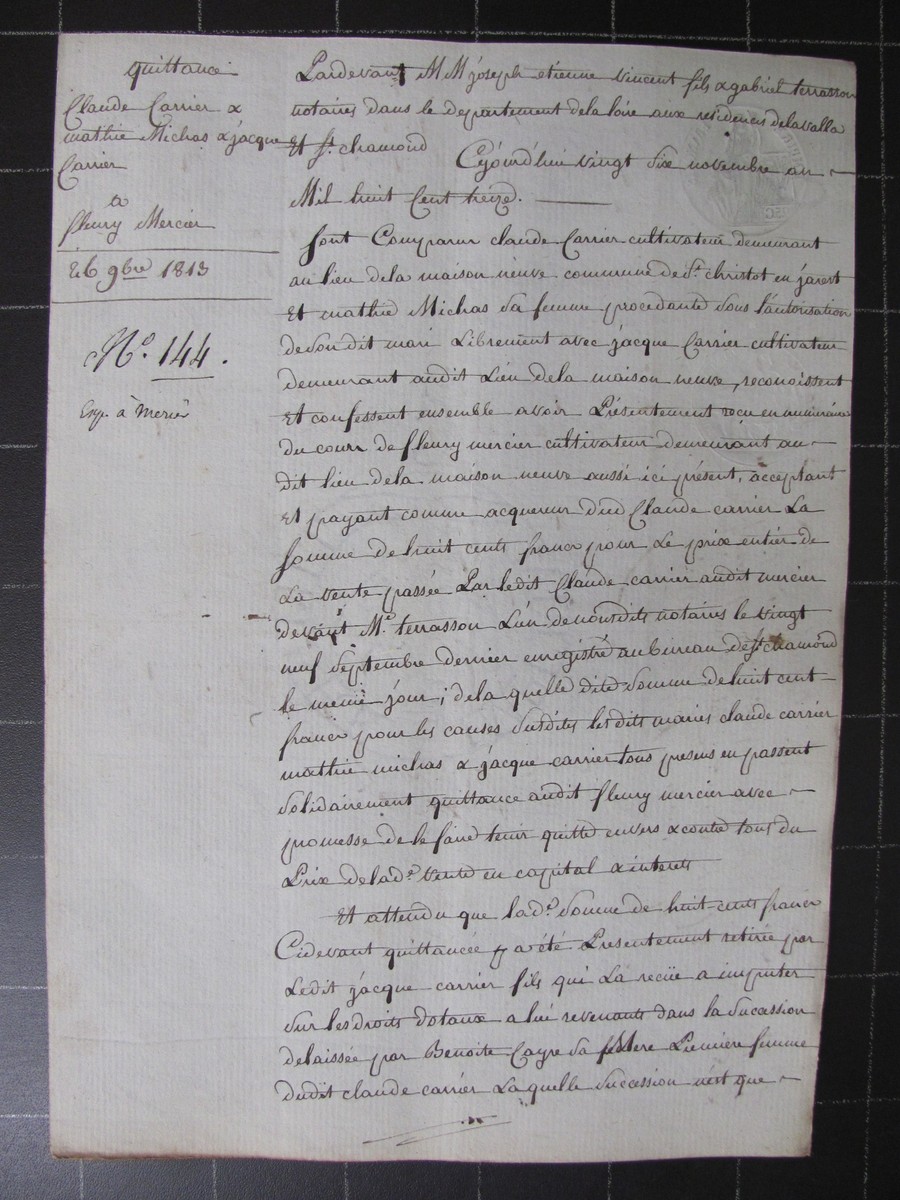 quittance
Claude Carrier &
mathie Michas & jacque
Carrier
a
fleury Mercier
26 9bre 1813
No. 144.
Exp. à Mercier
Pardevant MM joseph etienne Vincent fils & gabriel terrasson
notaires dans le departement de la loire aux residences de lavalla
Et St. chamond Cejourd'hui vingt six novembre an
Mil huit Cent treize.
sont Comparus claude Carrier cultivateur demeurant
au lieu de la maison neuve commune de St. christot en jarest
Et mathie Michas sa femme procedante sous l'autorisation
de son dit mari Librement avec jacque Carrier cultivateur
demeurant audit Lieu de la maison neuve, reconoissent
Et confessent ensemble avoir Présentement reçu en numéraire
du cours de fleury mercier cultivateur demeurant au
dit lieu de la maison neuve aussi ici présent, acceptant
Et payant comme acquereur dud Claude carrier La
somme de huit cents francs pour Le prix entier de
La vente passée Par ledit Claude carrier audit mercier
devant Me. terrasson L'un de nousdits notaires le vingt
neuf septembre dernier enregistré au bureau de St chamond
le meme jour; de la quelle dite somme de huit cent
francs pour les causes susdites lesdits mariés claude carrier
mathie michas & jacque carrier tous presens en passent
solidairement quittance audit fleury mercier avec
promesse de le faire tenir quitte envers & contre tous du
Prix de lade. vente en capital & interets
Et attendu que lade. somme de huit cents francs
Cidevant quittancée a été Présentement retirée par
Ledit jacque carrier fils qui La reçüe a imputer
sur les droits dotaux a lui revenants dans la sucession
delaissée par Benoite Cayre sa mere Premiere femme
dudit claude carrier La quelle sucession n'est que